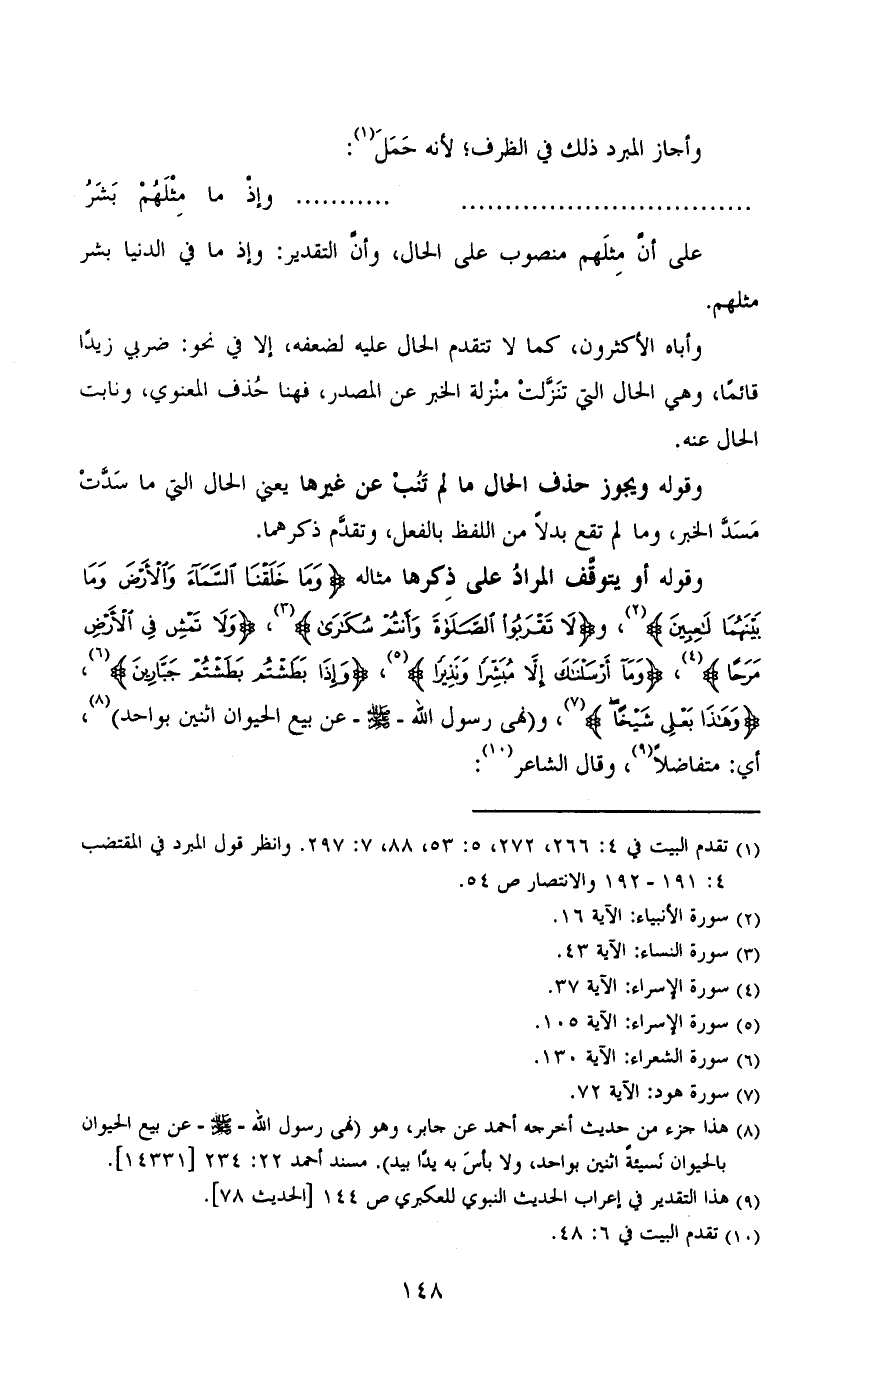 وأجاز المبرد ذلك في الظرف؛ لأنه حَمَلَ(١):
................................. ........... وإذْ ما مِثْلَهُمْ بَشَرُ
على أنَّ مِثلَهم منصوب على الحال، وأنَّ التقدير: وإذ ما في الدنيا بشر
مثلهم.
وأباه الأكثرون، كما لا تتقدم الحال عليه لضعفه، إلا في نحو: ضربي زيدًا
قائمًا، وهي الحال التي تنَزَّلتْ منْزلة الخبر عن المصدر، فهنا حُذف المعنوي، ونابت
الحال عنه.
وقوله ويجوز حذف الحال ما لم تَنُبْ عن غيرها يعني الحال التي ما سَدَّتْ
مَسَدَّ الخبر، وما لم تقع بدلاً من اللفظ بالفعل، وتقدَّم ذكرهما.
وقوله أو يتوقَّف المرادُ على ذِكرها مثاله ﴿وَمَا خَلَقْنَا ٱلسَّمَآءَ وَٱلْأَرْضَ وَمَا
بَيْنَهُمَا لَٰعِبِينَ﴾(٢)، و﴿لَا تَقْرَبُوا۟ ٱلصَّلَوٰةَ وَأَنتُمْ سُكَٰرَىٰ﴾(٣)، ﴿وَلَا تَمْشِ فِي ٱلْأَرْضِ
مَرَحًا﴾(٤)، ﴿وَمَآ أَرْسَلْنَٰكَ إِلَّا مُبَشِّرًا وَنَذِيرًا﴾(٥)، ﴿وَإِذَا بَطَشْتُم بَطَشْتُمْ جَبَّارِينَ﴾(٦)،
﴿وَهَٰذَا بَعْلِى شَيْخًاۖ﴾(٧)، و(نهى رسول الله - ﷺ - عن بيع الحيوان اثنين بواحد)(٨)،
أي: متفاضلاً(٩)، وقال الشاعر(١٠):
(١) تقدم البيت في ٤: ٢٦٦، ٢٧٢، ٥: ٥٣، ٨٨، ٧: ٢٩٧. وانظر قول المبرد في المقتضب
٤: ١٩١ - ١٩٢ والانتصار ص ٥٤.
(٢) سورة الأنبياء: الآية ١٦.
(٣) سورة النساء: الآية ٤٣.
(٤) سورة الإسراء: الآية ٣٧.
(٥) سورة الإسراء: الآية ١٠٥.
(٦) سورة الشعراء: الآية ١٣٠.
(٧) سورة هود: الآية ٧٢.
(٨) هذا جزء من حديث أخرجه أحمد عن جابر، وهو (نهى رسول الله - ﷺ - عن بيع الحيوان
بالحيوان نَسيئةً اثنين بواحد، ولا بأسَ به يدًا بيد). مسند أحمد ٢٢: ٢٣٤ [١٤٣٣١].
(٩) هذا التقدير في إعراب الحديث النبوي للعكبري ص ١٤٤ [الحديث ٧٨].
(١٠) تقدم البيت في ٦: ٤٨.
١٤٨